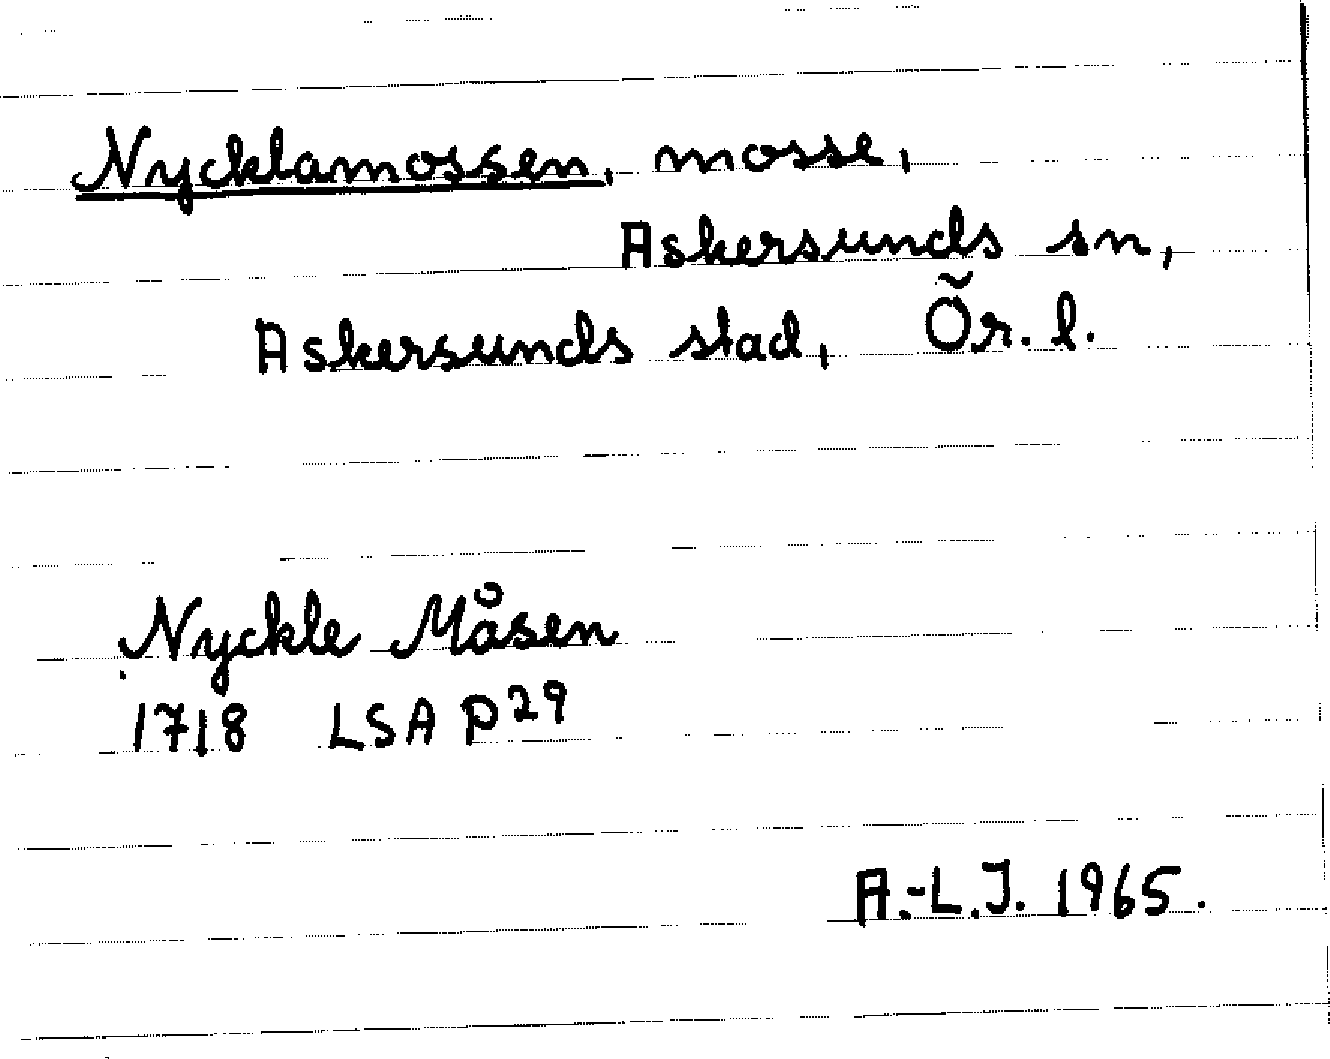 Nycklamossen, mosse,
Askersunds sn,
Askersunds stad, Ör. l.
Nyckle Måsen
1718 LSA P29
A.-L.J. 1965.